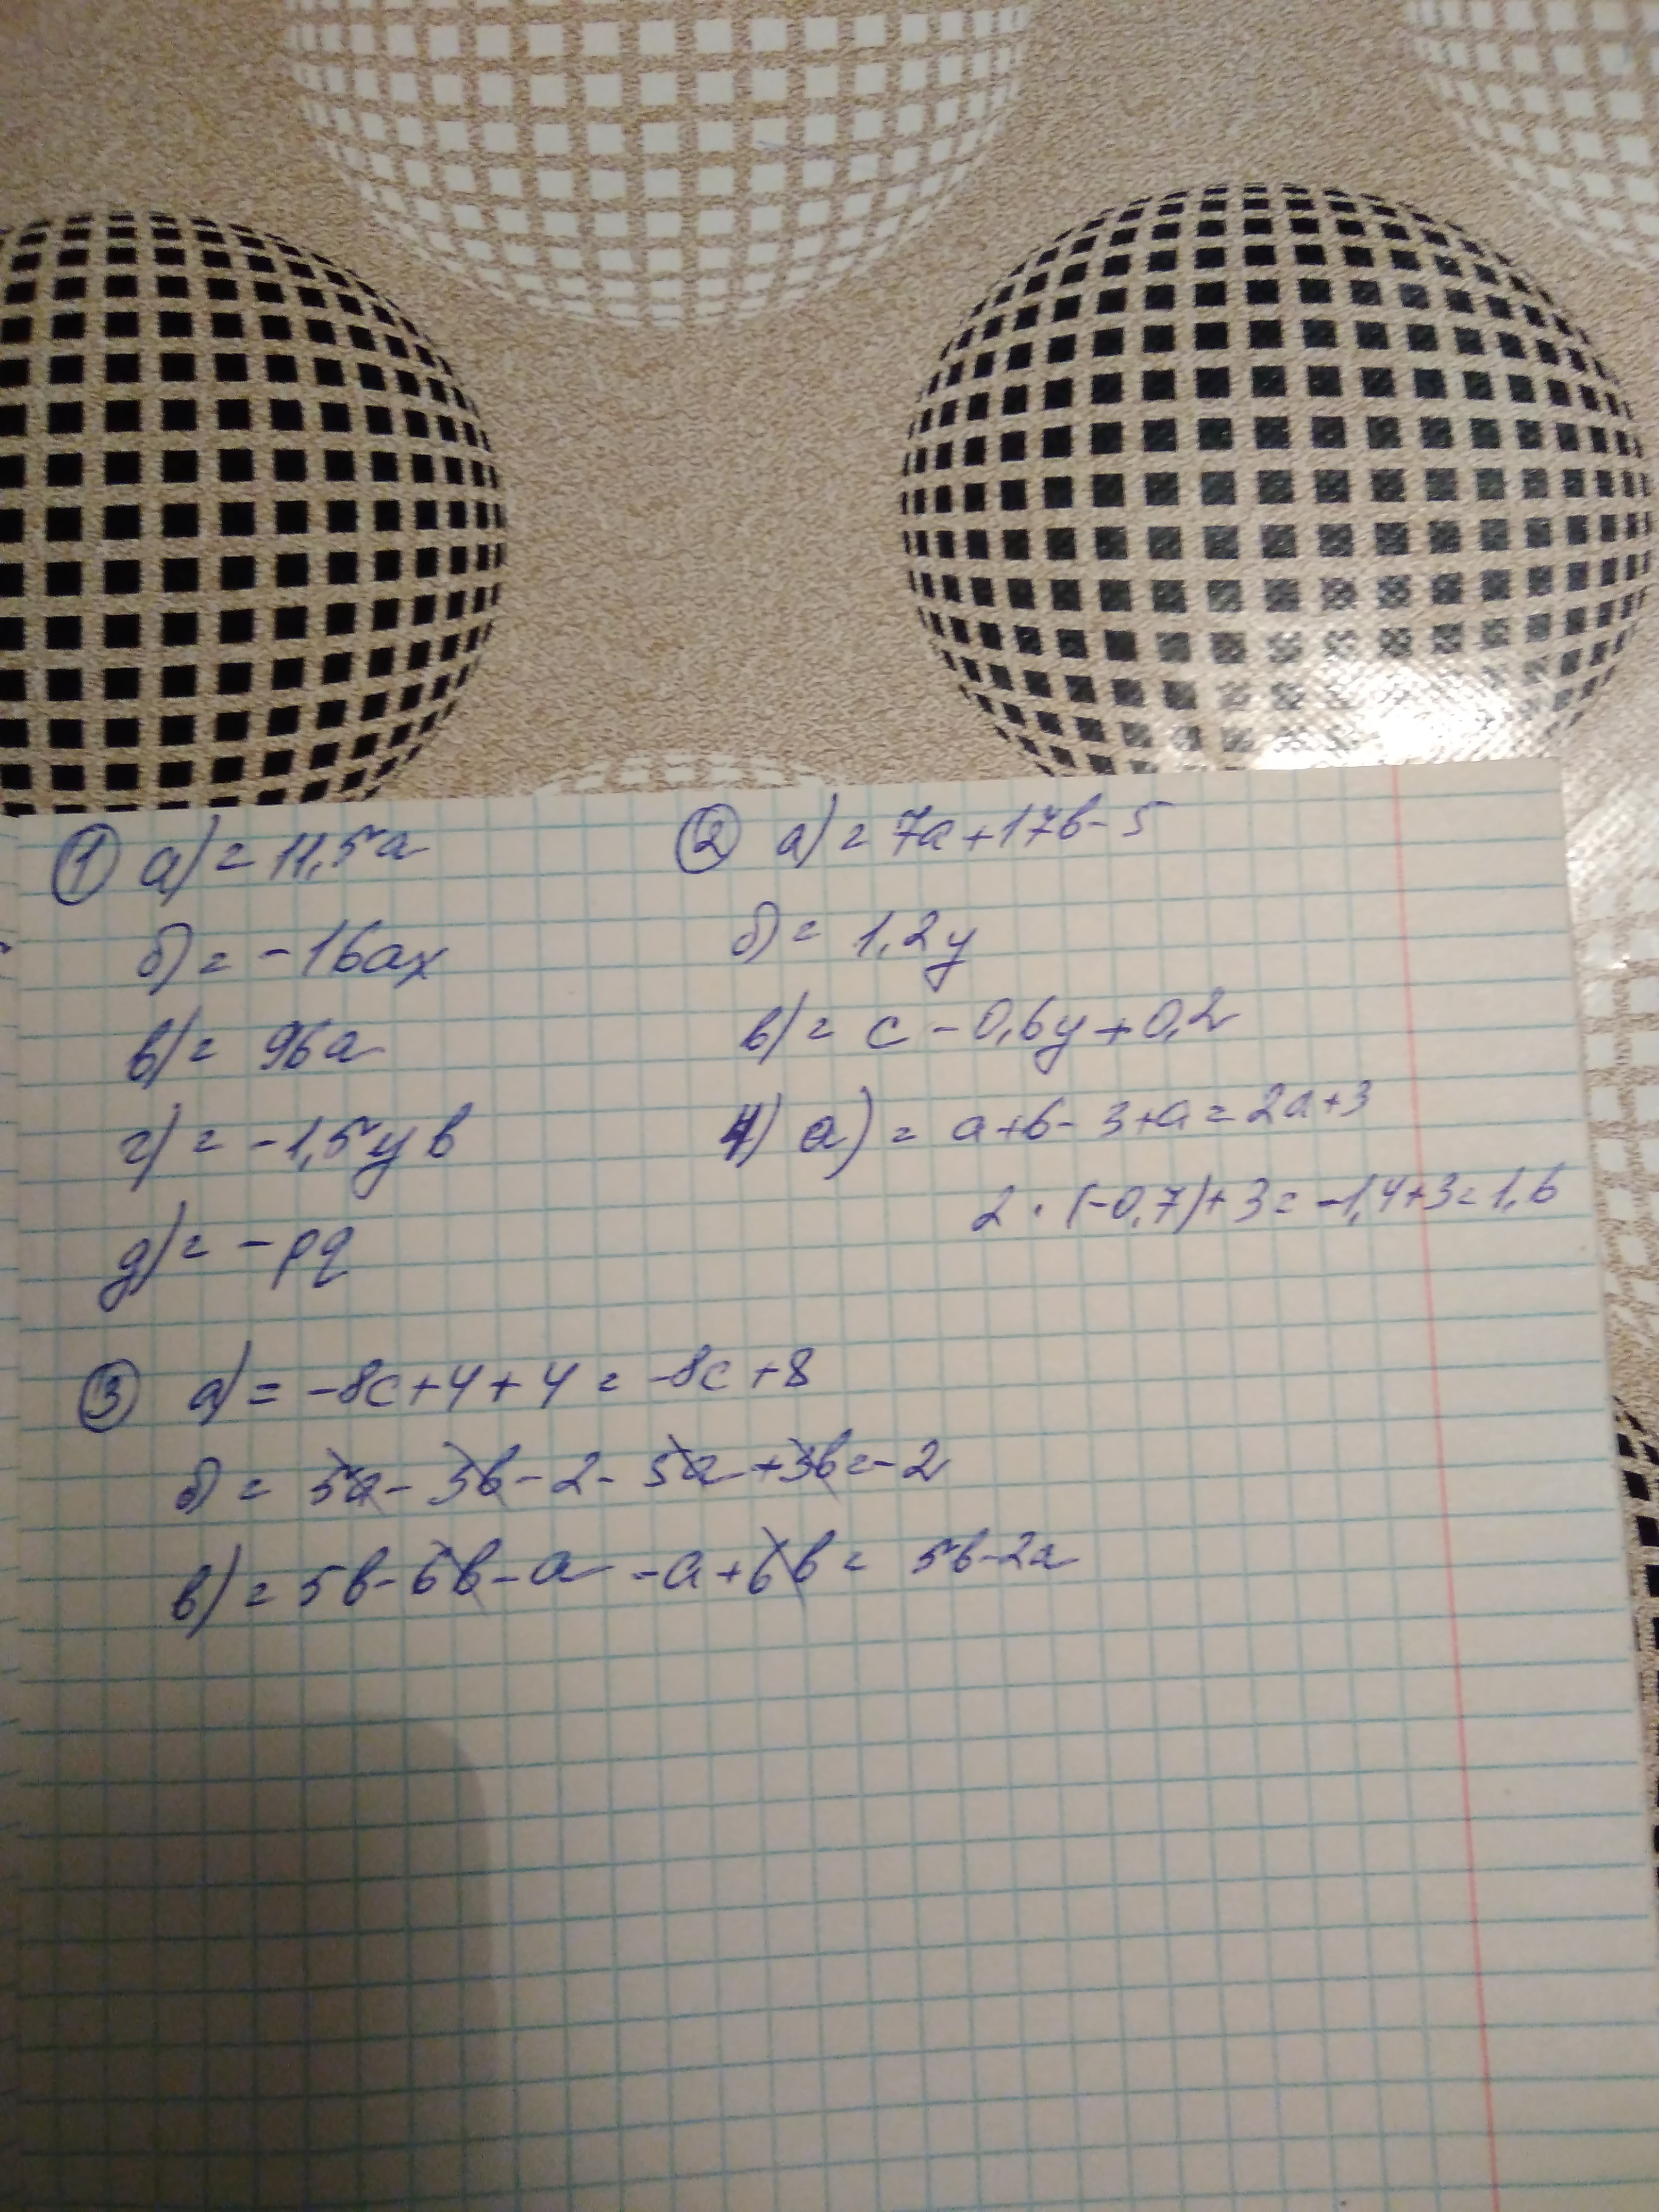 ① а) = 11,5a
б) = -16ax
в) = 96a
г) = -1,5yb
д) = -pq
② а) = 7a+17b-5
б) = 1,2y
в) = c-0,6y+0,2
4) а) = a+6-3+a=2a+3
2·(-0,7)+3=-1,4+3=1,6
③ а) = -8c+4+4=-8c+8
б) = 5a-3b-2-5a+3b=-2
в) = 5b-6b-a-a+6b= 5b-2a